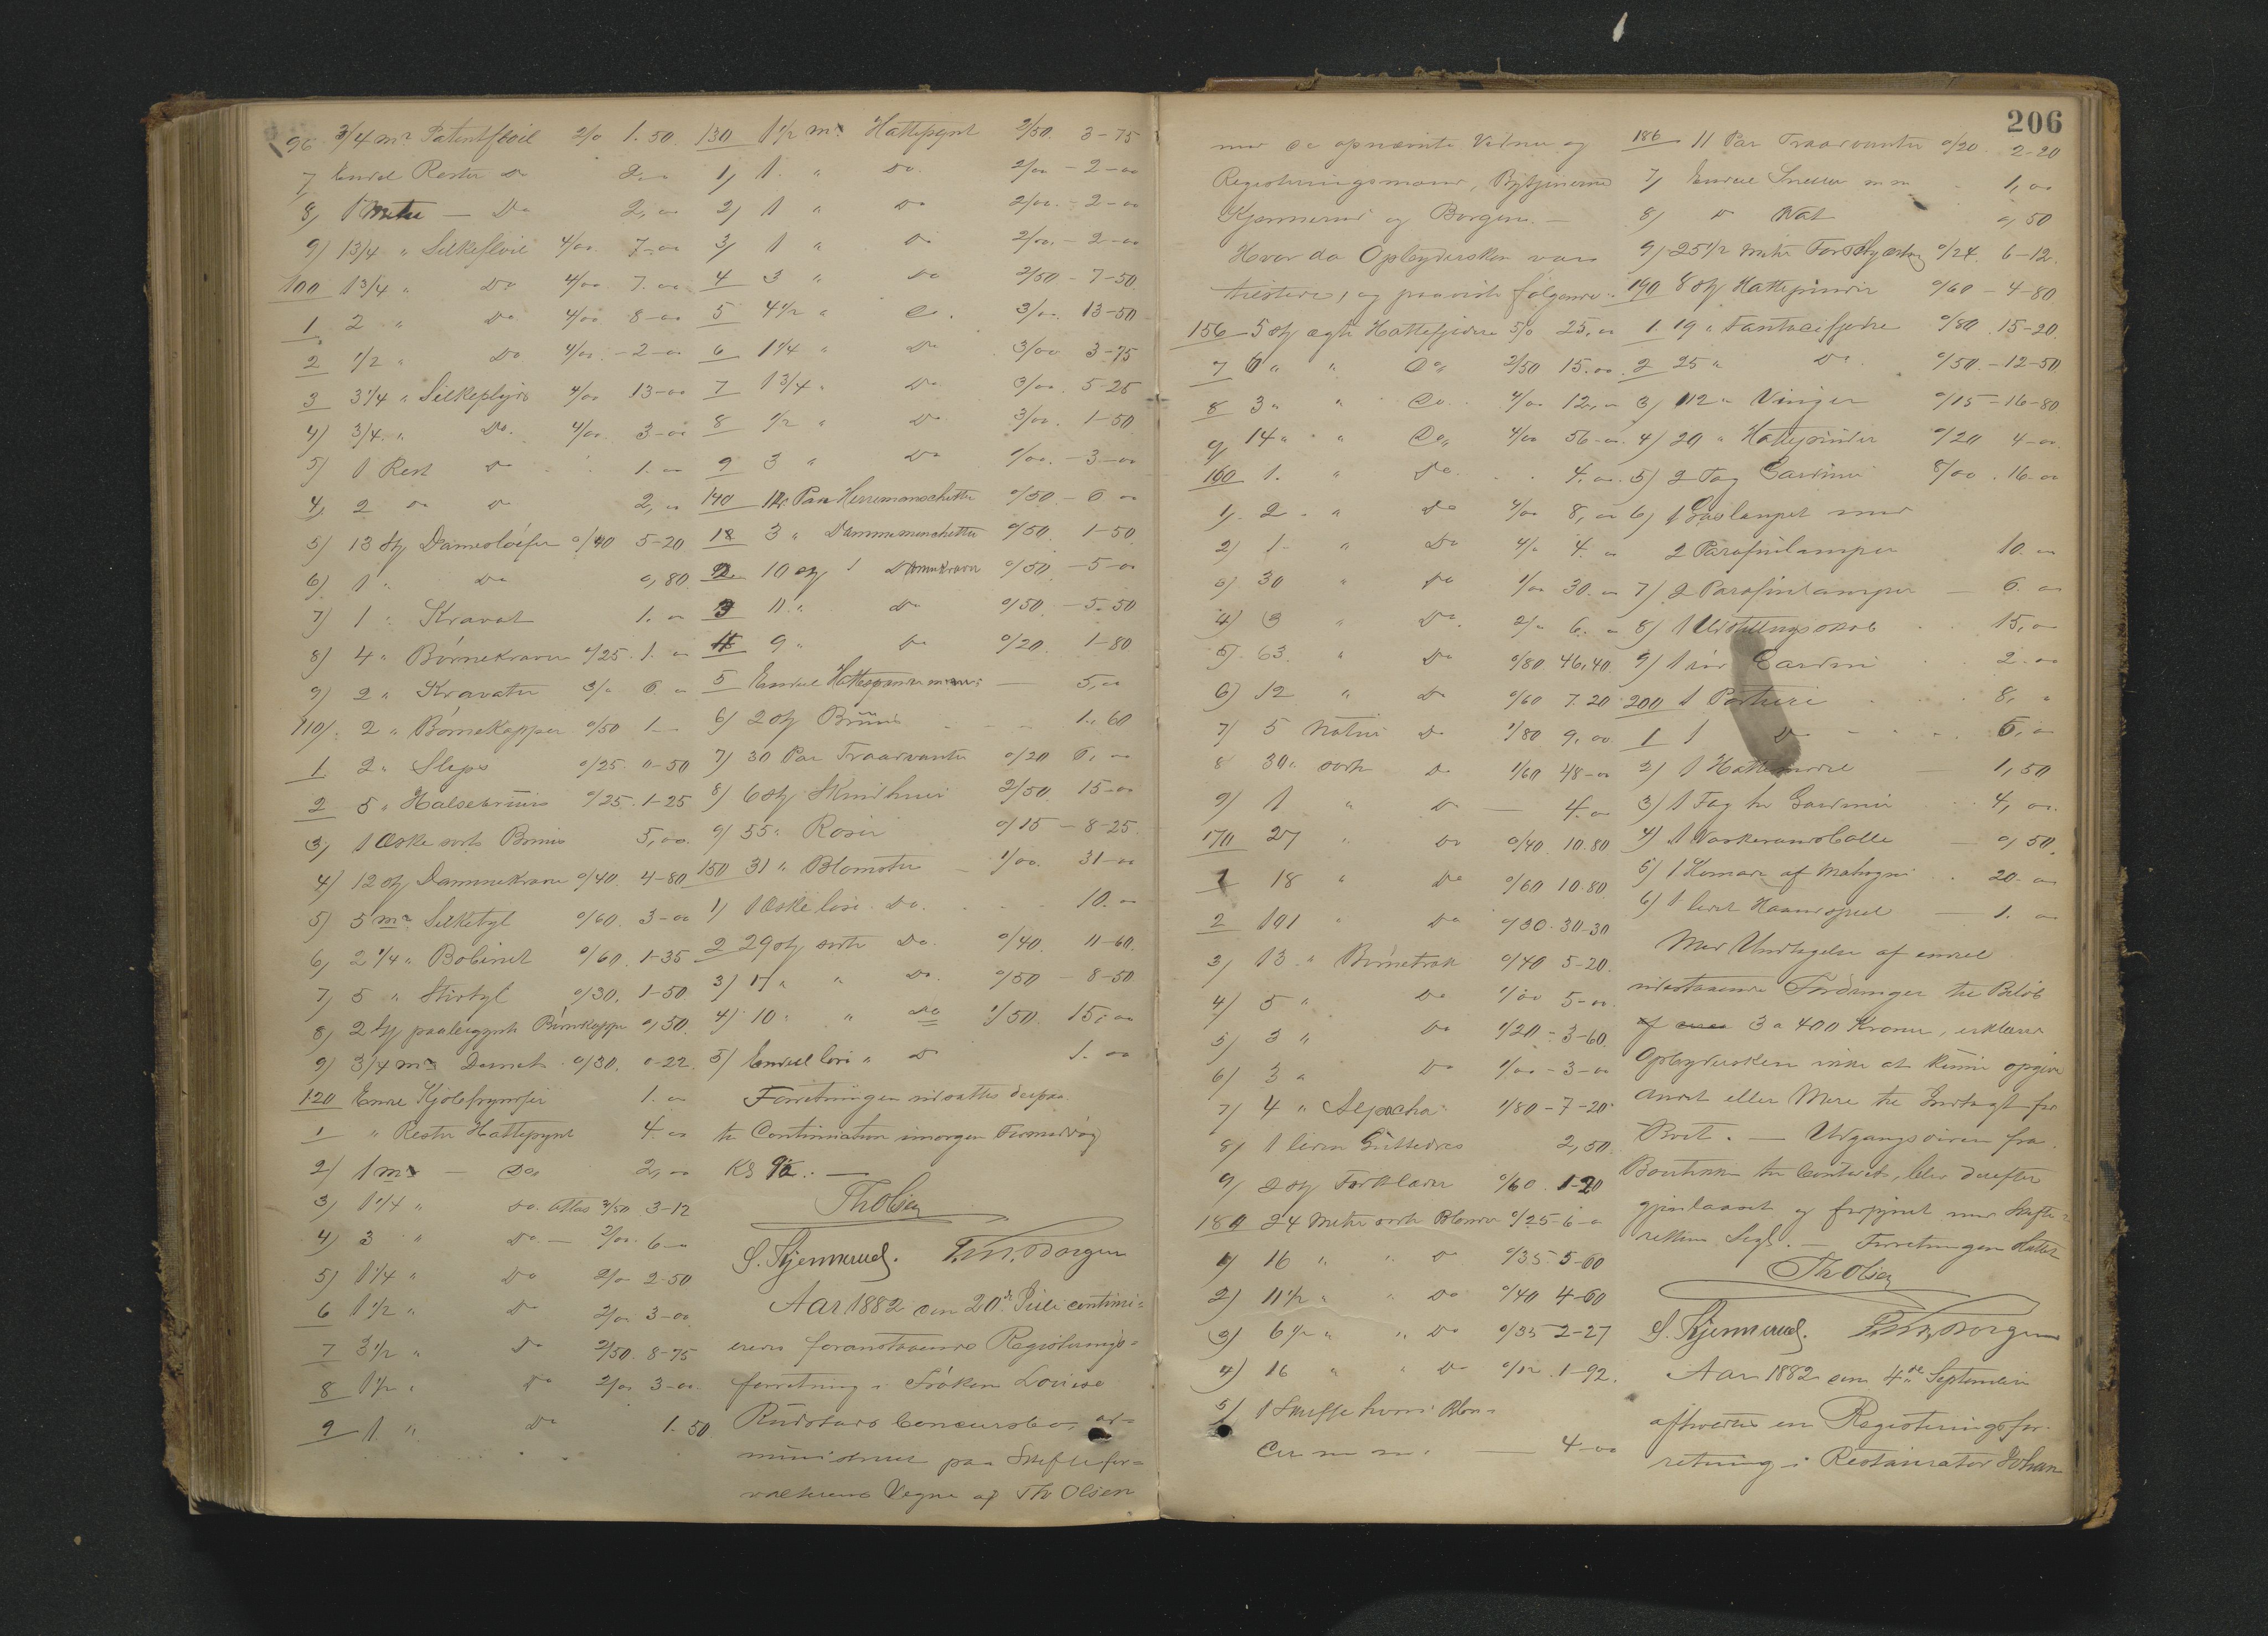 96 3/4 mr Patentfløil 2/0 1.50.
7 Endel Rester Do 2,00
8) 1 Meter — Do 2,00
9) 1 3/4 " Silkefløil 4/00 7-00
100 1 3/4 " Do 4/00 7.00
1 2 " Do 4/00 8-00
2 1/2 " Do 4/00 - 2-00
3 3 1/4 " Silkeplyds 4/00 13-00
4) 3/4 " Do. 4/00 3-00
5) 1 Rest Do 1.00
4) 2 Do Do 2,00
5) 13 Stk Damesløifer 0/40 5-20
6) 1 " Do 0,80
7) 1 " Kravat 1.00
8) 4 " Børnekraver 0/25. 1.00
9) 2 " Kravater 3/0 6.00
110) 2 " Børnekapper 0/50 1—
1 2 " Slips 0/25. 0-50
2 5 " Halsebruus 0/25. 1-25
3) 1 Æske sorte Bruus 5,00.
4) 12 Stk Damekraver 0/40. 4-80
5) 5 mr Silketyl 0/60. 3-00
6) 2 1/4 " Bobinet 0/60. 1-35
7) 5 " Stivtyl 0/30. 1-50.
8) 2 Stk paabegyndt Børnekapper 0,50.
9) 3/4 mr 0/30. 0-22.
120 Endel Kjolefrynser 1.00
1 " Rester Hattepynt 4.00
2) 1 mr — Do 2,00
3) 1 1/4 " Do. Atlas 2/50 3-12
4) 3 " Do. — 2/00. 6—
5) 1 1/4 " Do 2/00 2-50
6 1 1/2 " Do 2/00 3-00
7 3 1/2 " Do 2/50. 8-75
8 1 1/2 " Do 2/00 3-00.
9 1 " Do 1.50
130 1 1/2 mr Hattepynt 2/50. 3-75
1) 1 " Do. 2/00 - 2-00
2) 1 " Do 2/00. - 2-00
3) 1 " Do 2/00. - 2-00
4 3 " Do 2/50 - 7-50.
5 4 1/2 " Do. 3/00. 13-50
6 1 1/4 " Do 3/00 3-75
7 1 3/4 " Do 3/00. 5-25
8 1/2 " Do 3/00. 1-50
9 3 " Do 1/00. - 3-00
140 12 Par Herremanschetter 0/50 - 6 00
3 " Damemanschetter 0/50. 1-50.
2 10 Stk Damekraver 0/50 - 5-00
3 11 " Do 0/50. - 5-50
4 9 " Do 0/20. 1-80
5 Endel Hattespænder — 5,00
6) 2 Stk Bruus 1.60
7) 30 Par Traadvanter 0/20 6,00
8) 6 Stk Skindhuer 2/50. 15-00
9) 55 " Roser 0/15 - 8-25.
150 31 " Blomster — 1/00. 31-00
1) 1 Æske løse Do. 10.00
2 29 Stk sorte Do. 0/40. 11-60.
3) 17 " " Do. 0/50 - 8-50.
4) 10 " " Do 1/50. 15,00
5) Endel løse " Do 1.00
Forretningen udsattes derpaa
til Continuation imorgen Formiddag
Kl 9 1/2. —
Th Olsen
S. Kjennerud. P. M. Borgen
Aar 1882 den 20de Juli continu=
eredes foranstaaende Registrerings=
forretning i Frøken Louise
Rudstads Concursbo ad=
ministreret paa Skiftefor=
valterens Vegne af Th Olsen
206
med de opnævnte Vidner og
Registreringsmænd,
Kjennerud og Borgen. —
Hvor da Opbydersken var
tilstede, og paaviste følgende:
156 5 Stk ægte Hattefjedre 5/0 25,00
7 6 " " Do 2/50 15.00
8 3 " " Do. 4/00 12,00
9) 14 " " Do 4/00 56-00
160 1. " Do 4.00
1) 2 " Do 4/00 8,00
2) 1 " Do 4/0 4.00
3) 30 " Do 1/00 30.00
4) 3 " Do. 2/0 6.00
5) 63 " Do 0/80 46,40
6) 12 " Do 0/60 7.20
7) 5 Natur Do 1/80 9.00
8 30 " sorte Do 1/60 48-00
9) 1 " Do — 4.00
170 27 " Do 0/40 10.80
1 18 " Do 0/60 10.80
2 101 " Do 0/30. 30-30
3) 13 " Børnetræk 0/40 5-20.
4) 5 " Do 1/00 5-00
5) 3 " Do 1/20 - 3-60.
6) 3 " Do 1/00 - 3-00
7) 4 " Alpacha 1/80 - 7-20
8) 1 liden 2,50.
9) 2 Stk Forklæder 0/60 1-20
180 24 Meter sorte Blonder 0/25 - 6-00
1) 16 " " Do 0/35 5-60
2) 11 1/2 " " Do 0/40 4-60
3) 6 1/2 " " Do 0/35 2-27
4) 16 " " Do 0/12 1-92.
5) 1 Skuffe hvide Blon=
der m m. — 4-00
186 11 Par Traadvanter 0/20. 2-20
7) Endel Snører m m 1,00
8) Do Vat 0,50
9) 25 1/2 Meter 0/24. 6-12.
190 8 Stk Hattepinder 0/60 - 4-80
1 19 " Fantasifjedre 0/80. 15-20.
2 25 " Do. 0/50. - 12-50
3) 112 " Vinger 0/15 - 16-80
4) 20 " Hattepinder 0/20 4-00
5) 2 Fag Gardiner 8/00. 16.00
6) 1 Gaslampet med
2 Parafinlamper 10.00
7) 2 Parafinlamper — 6.00
8) 1 Udstillingsskab 15,00
9) 1 Gardin 2.00
200 1 Portiere 8,"
1 1 Do 6,00
2) 1 Hattemodel — 1,50
3) 1 Fag Gardiner 4,00.
4) 1 Vaskevandsballe — 0,50.
5) 1 Komode af Mahogni 20.00
6) 1 lidet Haandspeil — 1.00
Med Undtagelse af endel
udestaaende Fordringer til Beløb
af 3 a 400 Kroner, erklærer
Opbydersken ikke at kunne opgive
andet eller Mere til Indtægt for
Boet. — Udgangsdøren fra
Boutiken til Contoret, blev derefter
gjenlaaset og forsynet med Skifte=
rettens Segl. — Forretningen sluttet
Th Olsen
S. Kjennerud. P. M. Borgen
Aar 1882 den 4de September
afholdtes en Registreringsfor=
retning i Restauratør Johan